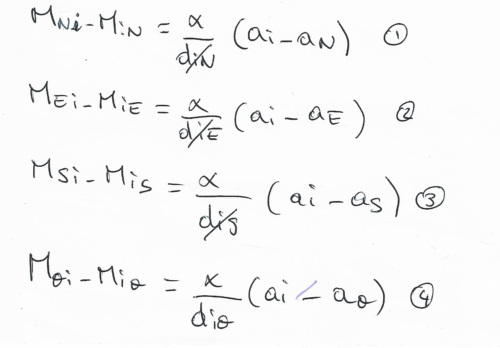 MNi - MiN = α/diN (ai - aN) ①
MEi - MiE = α/diE (ai - aE) ②
MSi - MiS = α/diS (ai - aS) ③
MOi - MiO = α/diO (ai - aO) ④